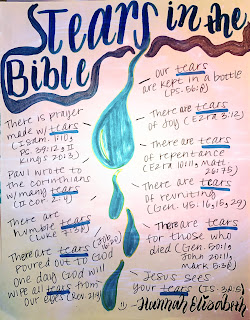 Tears in the
Bible
our tears
are kept in a bottle
(PS. 56:8)
There is prayer
made w/ tears
(1 Sam. 1:10,
PS. 39:12, II
Kings 20:5)
There are tears
of joy (Ezra 3:12)
There are tears
of repentance
(Ezra 10:1, Matt.
26:75)
Paul wrote to
the corinthians
w/ many tears
(II Cor. 2:4)
There are tears
of reuniting
(Gen. 45:14,15,29)
There are
humble tears
(Luke 7:38)
There are tears
for those who
died (Gen. 50:1,
John 20:11,
mark 5:38)
There are tears
poured out to God
one day God will
wipe all tears from
our eyes (Rev. 21:4)
Jesus sees
your tears (IS. 38:5)
-Hannah Elisabeth